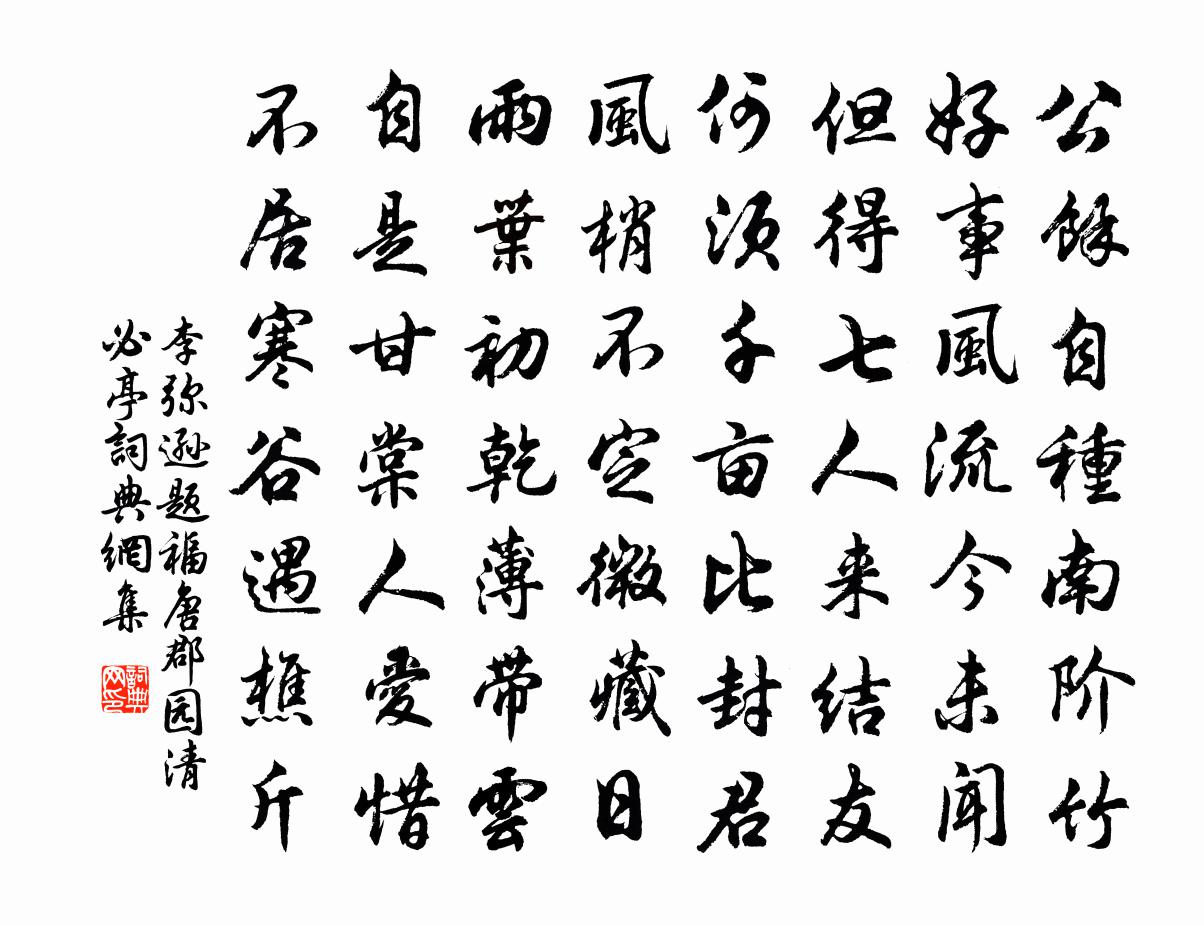 公餘自種南阶竹
好事風流今未聞
但得七人来结友
何須千亩比封君
風梢不定微藏日
雨葉初乾薄帶雲
自是甘棠人愛惜
不居寒谷遇樵斤
李弥遜题福唐郡园清
必亭詞典網集
詞典
网印